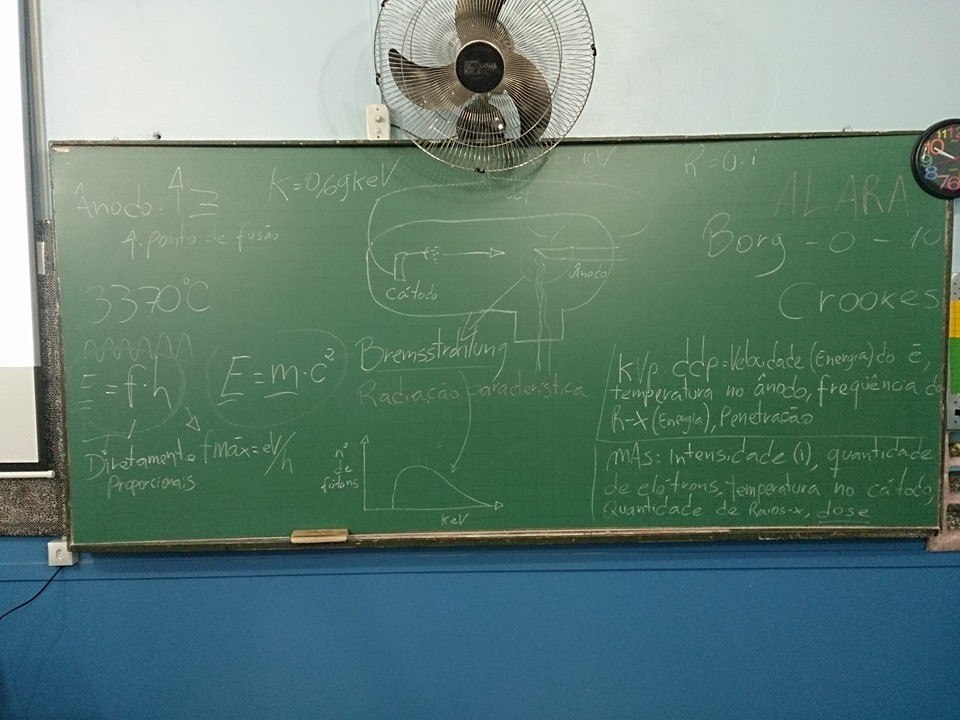 Ânodo:
K=0,69keV
A. ponto de fusão
3370°C
E = f.h
E = m.c²
Diretamente
Proporcionais
fmáx = eV/h
Cátodo
Ânodo
Bremsstrahlung
Radiação característica
nº
de
fótons
KeV
ALARA
Borg - 0 - 10
Crookes
KVp ddp=Velocidade (Energia) do ē,
temperatura no ânodo, freqüência do
R-X (Energia), Penetração
mAs: Intensidade (i), quantidade
de elétrons, temperatura no cátodo,
Quantidade de Raios-x, dose
11
12
10
9
8
7
6